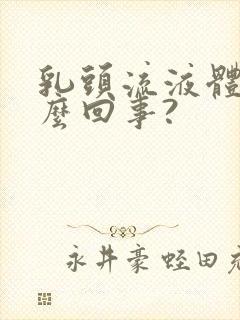 乳頭流液體
麼回事?
永井豪 蛭田充